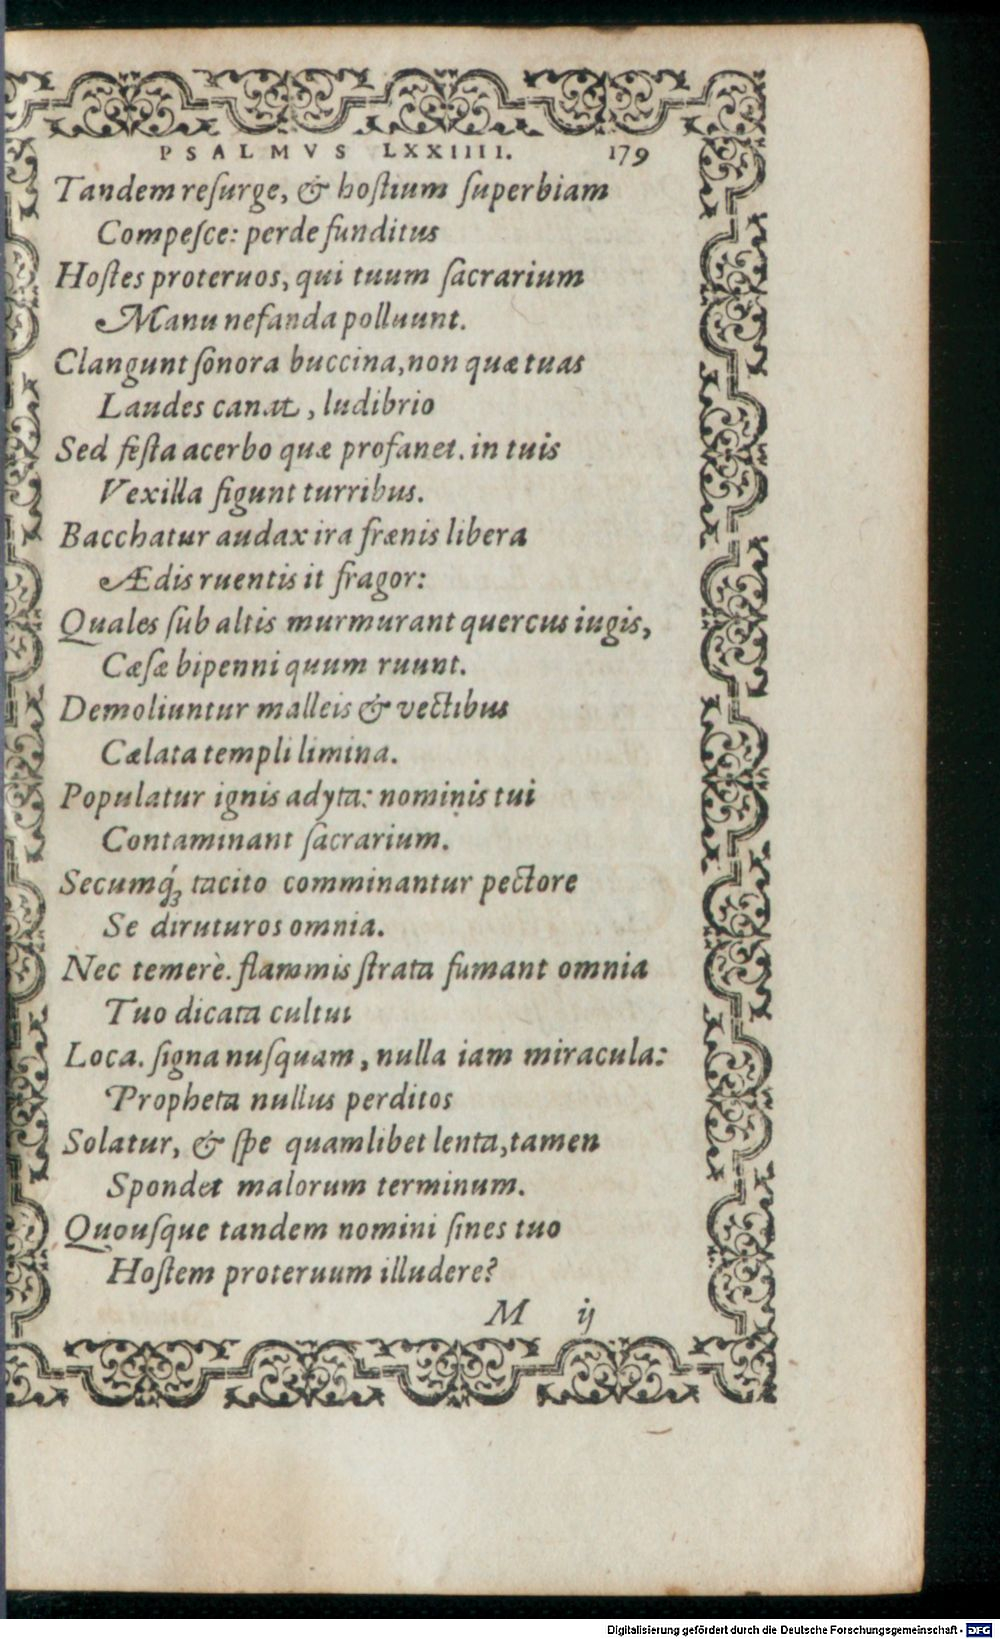 PSALMVS LXXIIII. 179
Tandem reſurge, & hoſtium ſuperbiam
Compeſce: perde funditus
Hoſtes proteruos, qui tuum ſacrarium
Manu nefanda polluunt.
Clangunt ſonora buccina, non quæ tuas
Laudes canat, ludibrio
Sed feſta acerbo quæ profanet. in tuis
Vexilla figunt turribus.
Bacchatur audax ira frænis libera
Ædis ruentis it fragor:
Quales ſub altis murmurant quercus iugis,
Cæſæ bipenni quum ruunt.
Demoliuntur malleis & vectibus
Cælata templi limina.
Populatur ignis adyta: nominis tui
Contaminant ſacrarium.
Secumq́ꝫ tacito comminantur pectore
Se diruturos omnia.
Nec temerè. flammis ſtrata fumant omnia
Tuo dicata cultui
Loca. ſigna nuſquam, nulla iam miracula:
Propheta nullus perditos
Solatur, & ſpe quamlibet lenta, tamen
Spondet malorum terminum.
Quouſque tandem nomini ſines tuo
Hoſtem proteruum illudere?
M ij
Digitalisierung gefördert durch die Deutsche Forschungsgemeinschaft - DFG